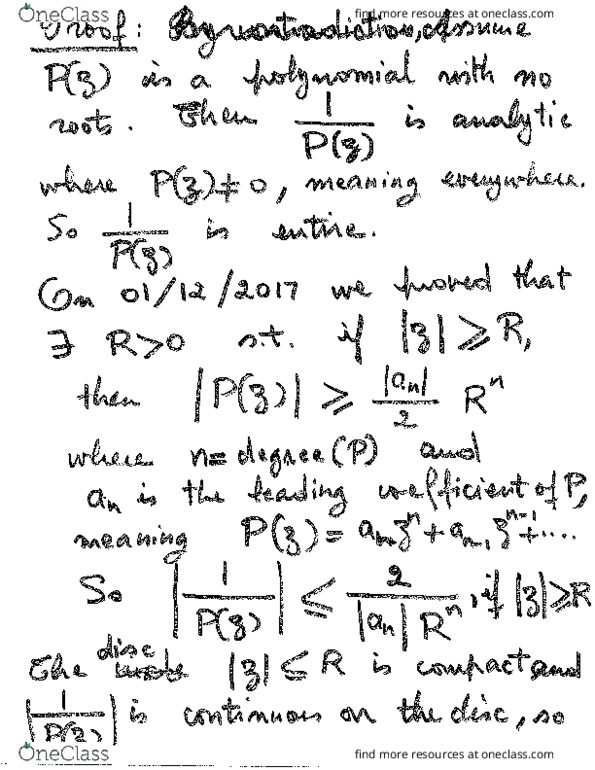 OneClass find more resources at oneclass.com
Proof: By contradiction, assume
P(z) is a polynomial with no
roots. Then 1/P(z) is analytic
where P(z)≠0, meaning everywhere.
So 1/P(z) is entire.
On 01/12/2017 we proved that
∃ R>0 s.t. if |z| ≥ R,
then |P(z)| ≥ |aₙ|/2 Rⁿ
where n = degree(P) and
aₙ is the leading coefficient of P,
meaning P(z) = aₙzⁿ + aₙ₋₁zⁿ⁻¹ + ....
So |1/P(z)| ≤ 2/(|aₙ| Rⁿ), if |z| ≥ R
The disc |z| ≤ R is compact and
|1/P(z)| is continuous on the disc, so
OneClass find more resources at oneclass.com